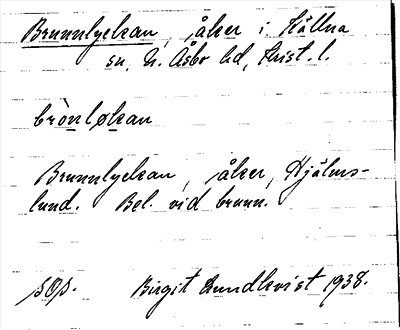 Brunnlyckan, åker i Källna
sn, N. Åsbo hd, Krist. l.
brònløkan
Brunnlyckan, åker, Hjälms-
lund. Bel. vid brunn.
sOp. Birgit Lundkvist 1938.